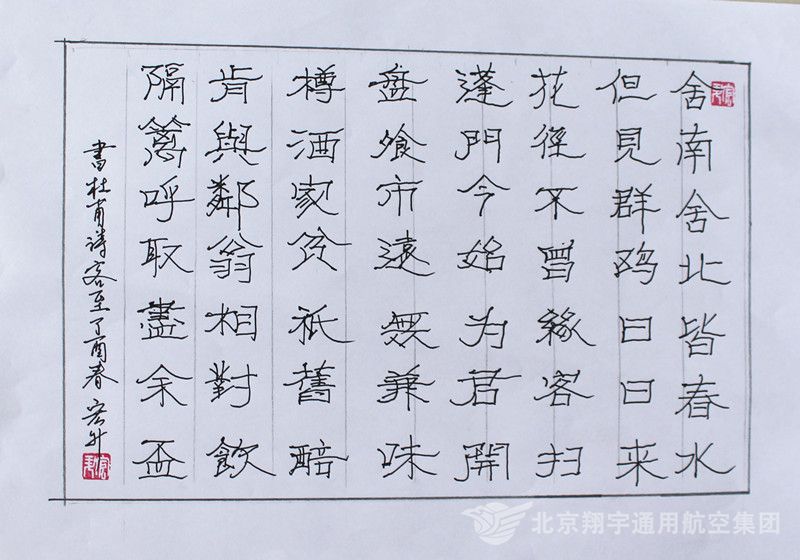 舍南舍北皆春水
但見群鸡日日来
花徑不曾緣客扫
蓬門今始为君開
盘飧市遠無兼味
樽酒家贫祇舊醅
肯與鄰翁相對飲
隔篱呼取盡余盃
書杜甫詩客至丁酉春 宏升
北京翔宇通用航空集团